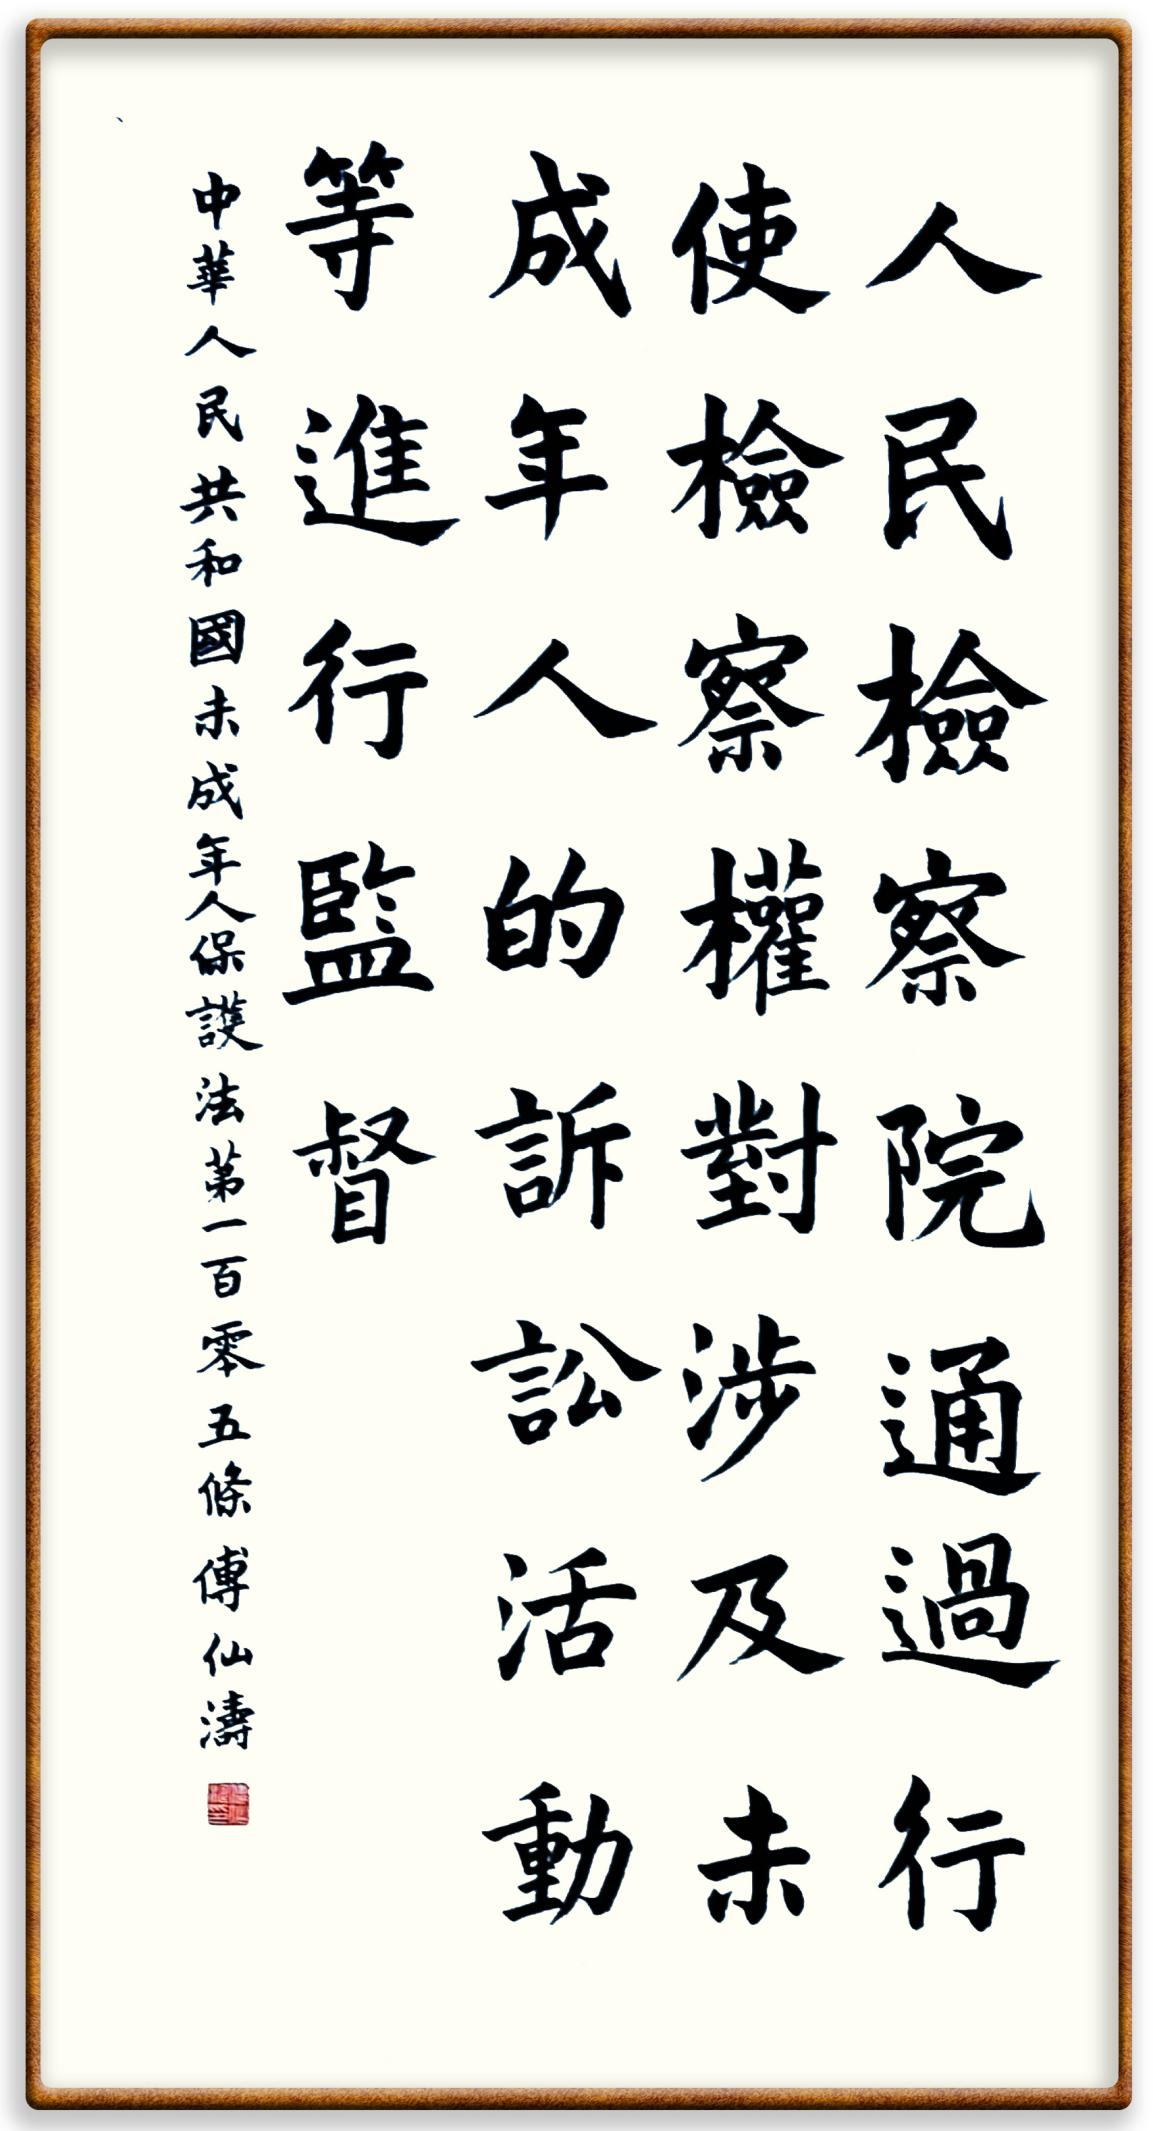 人民檢察院通過行
使檢察權對涉及未
成年人的訴訟活動
等進行監督
中華人民共和國未成年人保護法第一百零五條傅仙濤